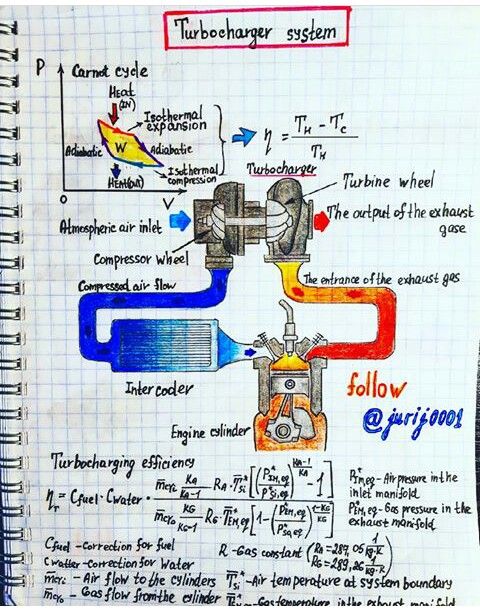 Turbocharger system
P
Carnot cycle
HEat
(IN)
Isothermal
expansion
Adiabatic
W
Adiabatic
Isothermal
compression
HEAT(out)
O
V
η = (TH - TC) / TH
Turbocharger
Turbine wheel
Atmospheric air inlet
The output of the exhaust
gase
Compressor wheel
Compressed air flow
The entrance of the exhaust gas
Intercooler
follow
@jurij0001
Engine cylinder
Turbocharging efficiency
ηr = Cfuel · Cwater ·
KA
KA-1
RA ·
KA-1
KA
- 1
KG
KG-1
RG ·
1 -
1-KG
KG
- Air pressure in the
inlet manifold
- Gas pressure in the
exhaust manifold
Cfuel - Correction for fuel
R - Gas constant
Cwatter - Correction for Water
- Air flow to the cylinders
- Air temperature at system boundary
- Gas flow from the cylinder
- Gas temperature in the exhaust manifold